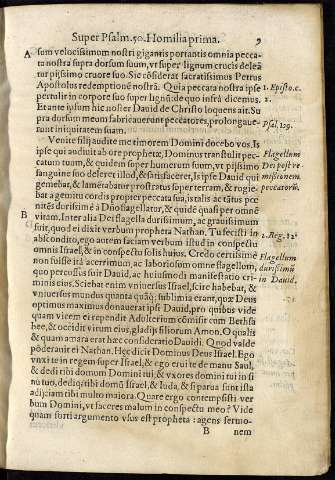 Super Psalm. 50. Homilia prima. 9
A sum velocissimum nostri gigantis portantis omnia pecca-
ta nostra supra dorsum suum, vt super lignum crucis delea
tur pijssimo cruore suo. Sic cōsiderat sacratissimus Petrus
Apostolus redemptionē nostrā. Quia peccata nostra ipse
pertulit in corpore suo super lignū: de quo infrà dicemus.
Et ante ipsum hic noster Dauid de Christo loquens ait. Su
pra dorsum meum fabricauerunt peccatores, prolongaue-
runt iniquitatem suam.
1. Episto. c.
2.
Psal. 129.
Venite filij audite me timorem Domini docebo vos. Is
ipse qui audiuit ab ore prophetæ, Dominus transtulit pec-
catum tuum, & quidem super humerum suum, vt pijssimo
sanguine suo deferet illod, & satisfaceret, is ipse Dauid qui
gemebat, & lamētabatur prostratus super terram, & rugie-
bat a gemitu cordis propter peccata sua, is talis ac tātus pœ-
nitēs durissimè à Dño flagellatur, & quidē quasi per omnē
B vitam. Inter alia Dei flagella durissimum, ac grauissimum
fuit, quod ei dixit verbum prophetæ Nathan. Tu fecisti in
abscondito, ego autem faciam verbum istud in conspectu
omnis Israel, & in conspectu solis huius. Credo certissimè
non fuisse ita acerrimum, ac laboriosum omne flagellum,
quo percussus fuit Dauid, ac huiusmodi manifestatio cri-
minis eius. Sciebat enim vniuersus Israel, scire habebat, &
Flagellum
Dei post re-
missionem
peccatorū.
2. Reg. 12.
Flagellum
durissimū
in Dauid.
vniuersus mundus quanta quāq; sublimia erant, quæ Deus
optimus maximus donauerat ipsi Dauid, pro quibus vide
quam vicem ei rependit Adulterium cōmisit cum Bethsa
bee, & occidit virum eius, gladijs filiorum Amon. O qualis
& quam amara erat hæc consideratio Dauidi. Quod valde
pōderauit ei Nathan. Hęc dicit Dominus Deus Israel. Ego
vnxi te in regem super Israel, & ego erui te de manu Saul,
& dedi tibi domum Domini tui, & vxores domini tui in si-
nu tuo, dediq; tibi domū Israel, & Iuda, & si parua sunt ista
adijciam tibi multo maiora. Quare ergo contempsisti ver
bum Domini, vt faceres malum in conspectu meo? Vide
quam forti argumento vsus est propheta: agens sermo-
B nem